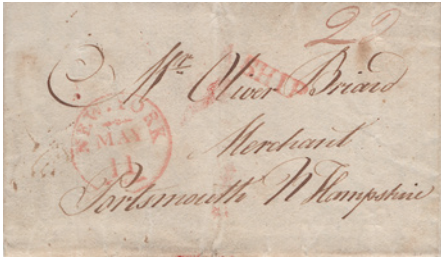 22
SHIP
Mr. Oliver Briard
NEW-YORK
MAY
11
Merchant
Portsmouth N Hampshire